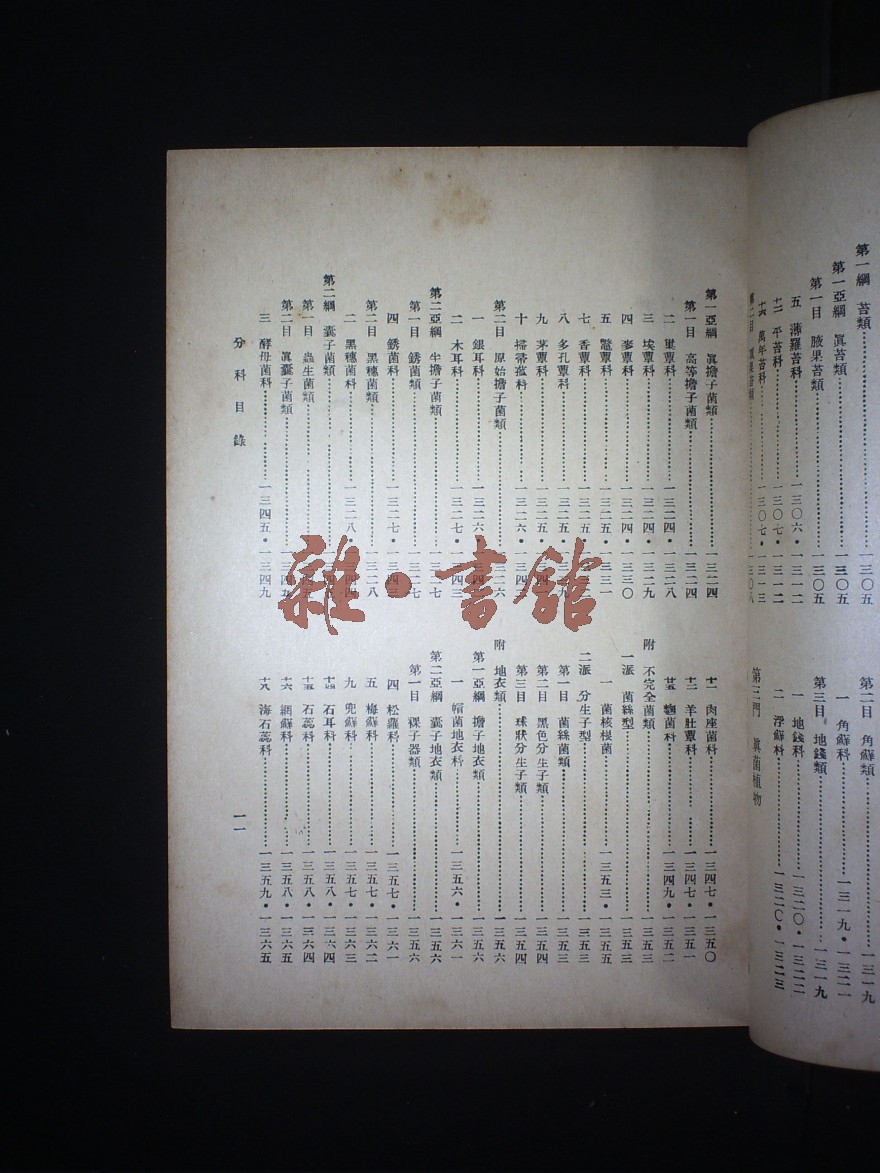 第一綱 苔類
第一亞綱 眞苔類……一三〇五
第一目 腋果苔類……一三〇五
五 薄羅苔科……一三〇六・一三一二
十二 平苔科……一三〇七・一三一二
十六 萬年苔科……一三〇七・一三一三
第二目 角蘚類……一三一九
一 角蘚科……一三一九・一三二一
第三目 地錢類……一三一九
一 地錢科……一三二〇・一三二二
二 浮蘚科……一三二〇・一三二三
第三門 眞菌植物
第一亞綱 眞擔子菌類……一三二四
第一目 高等擔子菌類……一三二四
二 裏蕈科……一三二四・一三二八
三 埃蕈科……一三二四・一三二九
四 麥蕈科……一三二四・一三三〇
五 鼈蕈科……一三二五・一三三一
七 香蕈科……一三二五
八 多孔蕈科……一三二五
九 茅蕈科……一三二五
十 掃帚菰科……一三二六
第二目 原始擔子菌類
一 銀耳科……一三二六
二 木耳科……一三二七・一三四三
第二亞綱 半擔子菌類
第一目 銹菌類
四 銹菌科……一三二七・一三四三
第二目 黑穗菌類……一三二八
二 黑穗菌科……一三二八・一三四四
第二綱 囊子菌類
第一目 蟲生菌類
第二目 眞囊子菌類
三 酵母菌科……一三四五・一三四九
十一 肉座菌科……一三四七・一三五〇
十三 羊肚蕈科……一三四七・一三五一
廿五 麴菌科……一三四九・一三五二
附 不完全菌類……一三五三
一派 菌絲型……一三五三
一 菌核根菌……一三五三・一三五五
二派 分生子型……一三五三
第一目 菌絲菌類……一三五三
第二目 黑色分生子類……一三五四
第三目 球狀分生子類……一三五四
附 地衣類……一三五六
第一亞綱 擔子地衣類……一三五六
一 帽菌地衣科……一三五六・一三六一
第二亞綱 囊子地衣類……一三五六
第一目 裸子器類……一三五六
四 松蘿科……一三五七・一三六一
五 梅蘚科……一三五七・一三六二
九 兜蘚科……一三五七・一三六三
十四 石耳科……一三五八・一三六四
十五 石蕊科……一三五八・一三六四
十六 網蘚科……一三五八・一三六五
十八 海石蕊科……一三五九・一三六五
分科目錄
一一
雜・書館